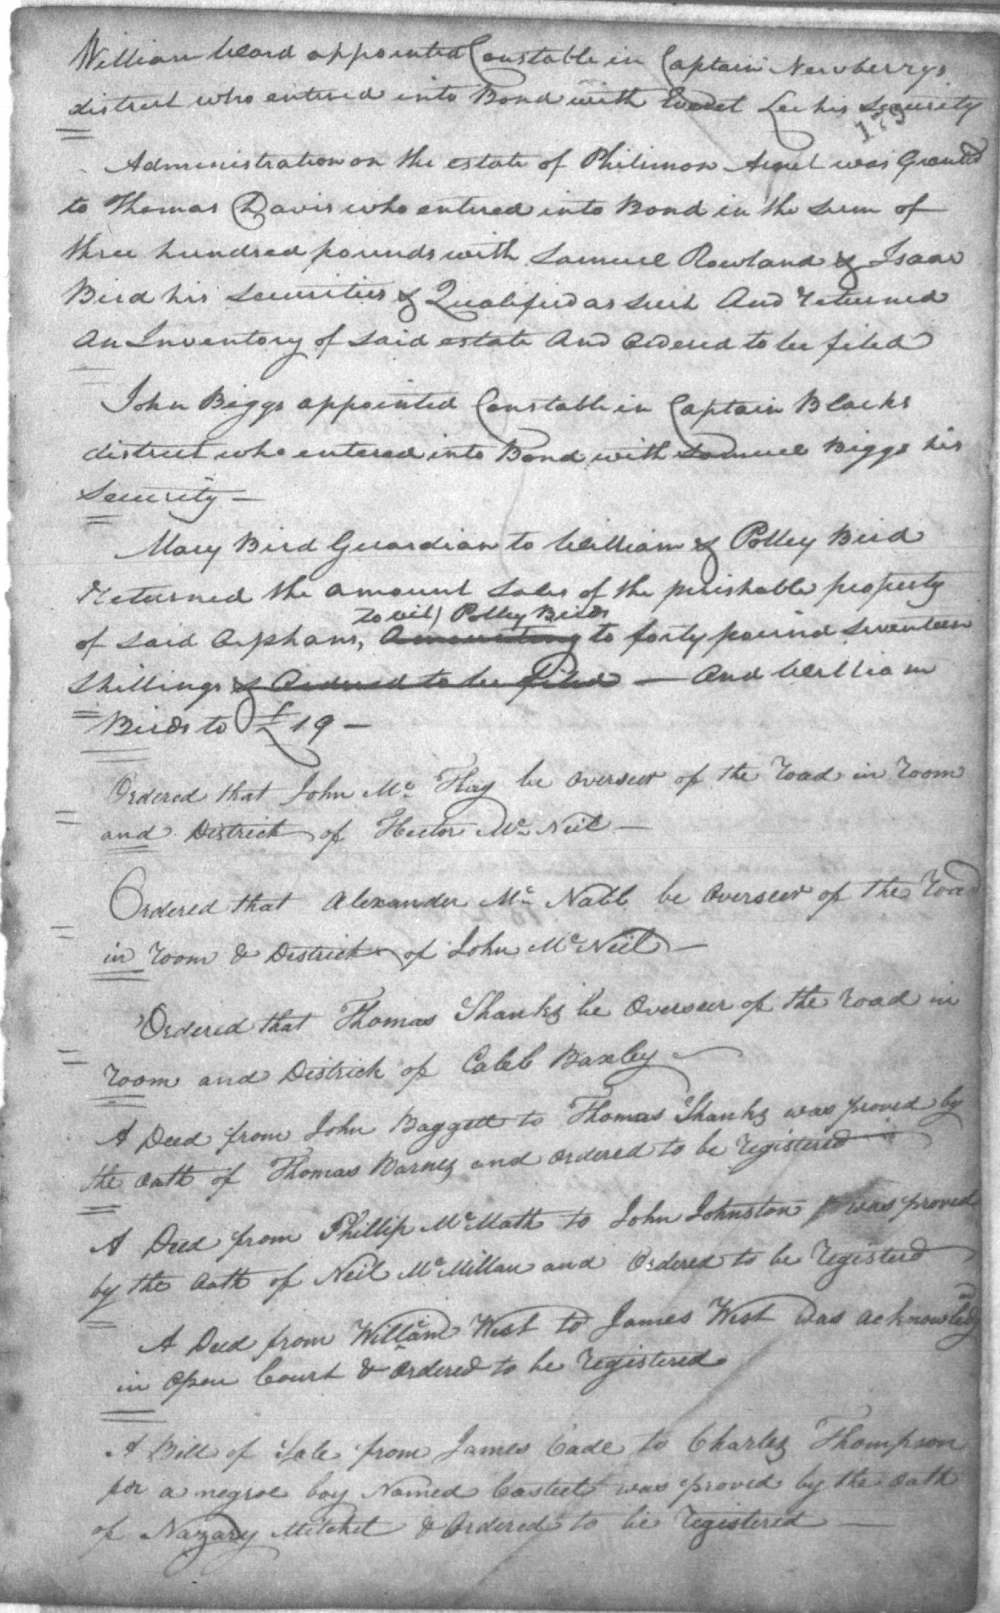 William Beard appointed Constable in Captain Newberrys
district who entered into Bond with Lee his Security
179
Administration on the estate of Philimon was Granted
to Thomas Davis who entered into Bond in the sum of
three hundred pounds with Samuel Rowland & Isaac
Bird his Securities & Qualified as such And returned
An Inventory of said estate And ordered to be filed
John Biggs appointed Constable in Captain Blacks
district who entered into Bond with Samuel Biggs his
Security —
Mary Bird Guardian to William & Polley Bird
Returned the amount Sales of the perishable property
to wit) Polley Birds
of said Orphans, Amounting to forty pound Seventeen
Shillings & Ordered to be filed — And William
Birds to £ 19 —
Ordered that John Mc. Flay be overseer of the road in room
and District of Hector Mc Neil —
Ordered that Alexander Mc. Nabb be Overseer of the Road
in room & District of John Mc Neil —
Ordered that Thomas Shanks be Overseer of the road in
room and District of Caleb Baxley —
A Deed from John Baggett to Thomas Shanks was proved by
the oath of Thomas Barnes and ordered to be registered
A Deed from Phillip Mc Math to John Johnston was proved
by the oath of Neil McMillan and Ordered to be registerd
A Deed from William West to James West was acknowledged
in open Court & ordered to be registered
A Bill of Sale from James Cade to Charles Thompson
for a negroe boy Named was proved by the oath
of Nazary Mitchel & Ordered to be registered —